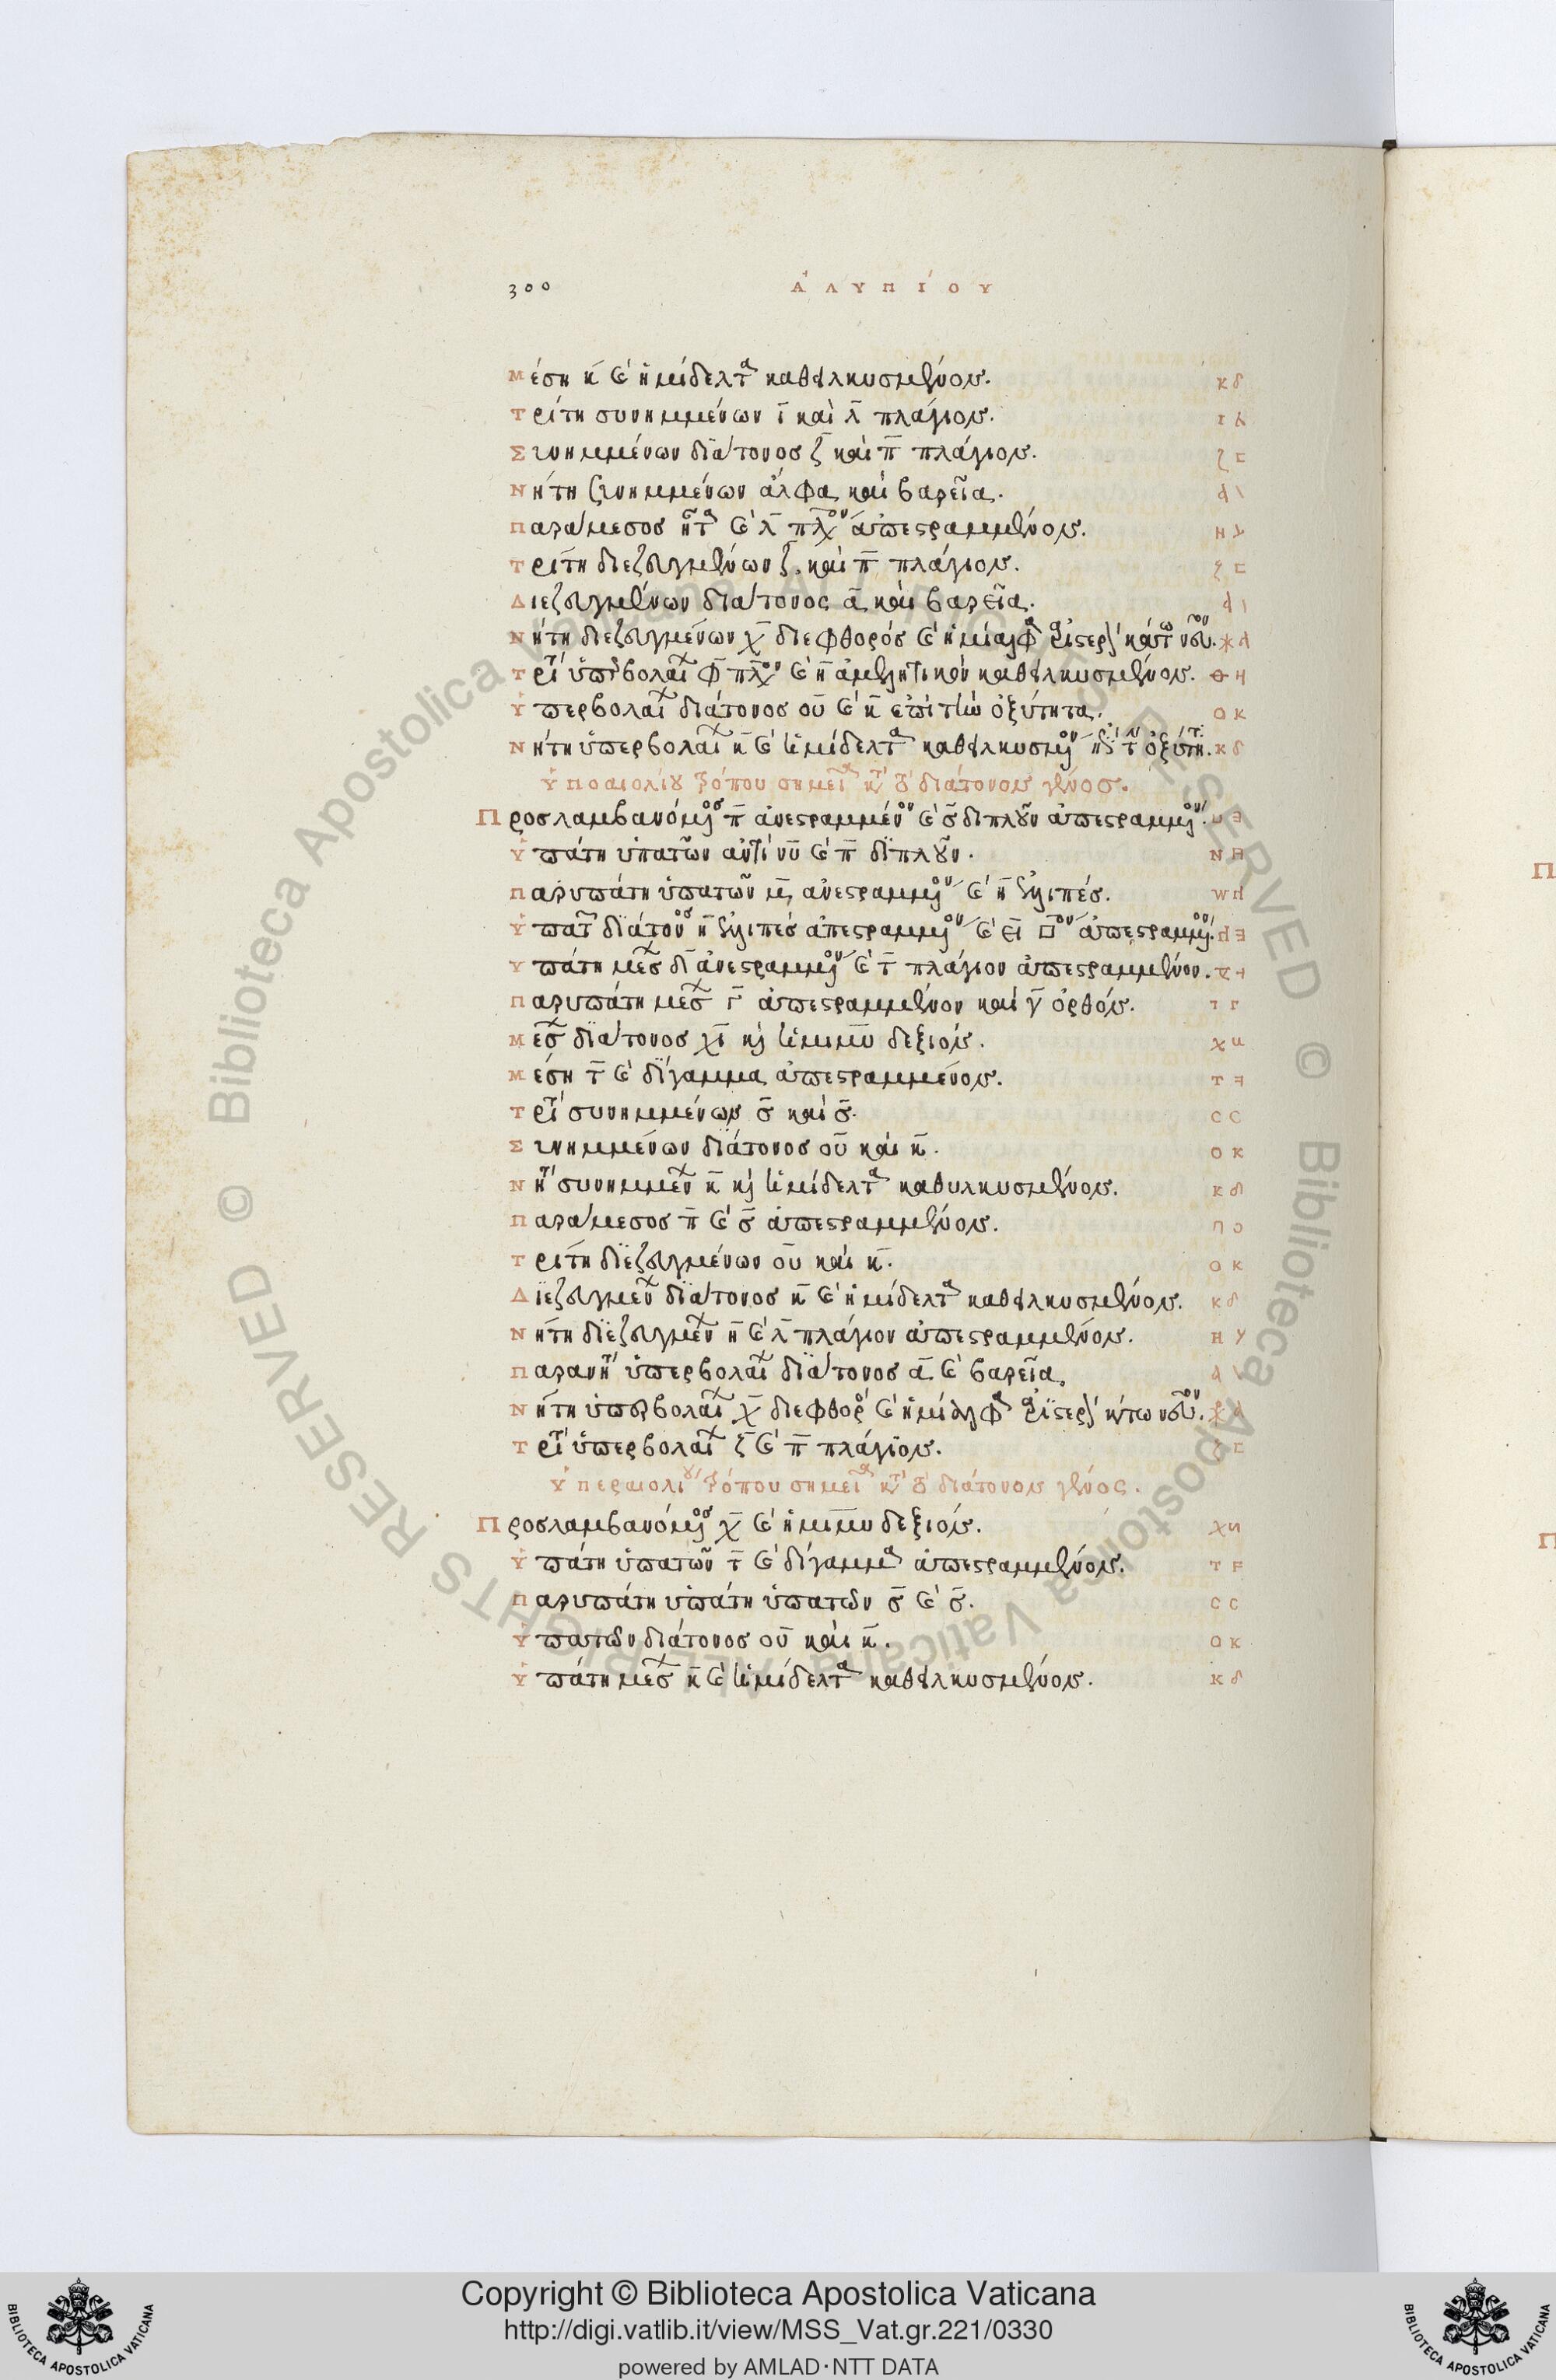 300 ἈΛΥΠΊΟΥ
Μέση κ̄ καὶ ἡμίδελτα καθειλκυσμένον. κδ
Τρίτη συνημμένων τ̄ καὶ λ̄ πλάγιον.
Συνημμένων διάτονος ζ̄ καὶ π̄ πλάγιον. ζ⊏
Νήτη συνημμένων ἄλφα καὶ βαρεῖα.
Παράμεσος ἦτα καὶ λ̄ πλάγιον ἀπεστραμμένον.
Τρίτη διεζευγμένων ζ̄ καὶ π̄ πλάγιον. ζ⊏
Διεζευγμένων διάτονος ᾱ καὶ βαρεῖα.
Νήτη διεζευγμένων χ̄ διεφθορός καὶ ἡμίαλφα ἀριστερὸν κάτω νεῦον.
Τρίτη ὑπερβολαίων φ̄ πλάγιον καὶ η̄ ἀμελητικὸν καθειλκυσμένον.
Ὑπερβολαίων διάτονος οῡ καὶ κ̄ ἐπὶ τὴν ὀξύτητα. ο κ
Νήτη ὑπερβολαίων κ̄ καὶ ἡμίδελτα καθειλκυσμένον ἐπὶ τὴν ὀξύτητα. κδ
Ὑποαιολίου τρόπου σημεῖα κατὰ τὸ διάτονον γένος.
Προσλαμβανόμενος π̄ ἀνεστραμμένον καὶ σ̄ διπλοῦν ἀπεστραμμένον.
Ὑπάτη ὑπατῶν ἀντίνυ καὶ π̄ διπλοῦν.
Παρυπάτη ὑπατῶν μ̄ ἀνεστραμμένον καὶ η̄ ἐλλιπές.
Ὑπατῶν διάτονος η̄ ἐλλιπές ἀπεστραμμένον καὶ ε̄ῑ τετράγωνον ἀπεστραμμένον.
Ὑπάτη μέσων δῑ ἀνεστραμμένον καὶ τ̄ πλάγιον ἀπεστραμμένον.
Παρυπάτη μέσων Γ̄ ἀπεστραμμένον καὶ γ̄ ὀρθόν. ˥ Γ
Μέσων διάτονος χῑ καὶ ἡμιμῡ δεξιόν.
Μέση τ̄ καὶ δίγαμμα ἀπεστραμμένον.
Τρίτη συνημμένων σ̄ καὶ σ̄. C C
Συνημμένων διάτονος οῡ καὶ κ̄. ο κ
Νήτη συνημμένων κ̄ καὶ ἡμίδελτα καθειλκυσμένον. κδ
Παράμεσος π̄ καὶ σ̄ ἀπεστραμμένον. π Ɔ
Τρίτη διεζευγμένων οῡ καὶ κ̄. ο κ
Διεζευγμένων διάτονος κ̄ καὶ ἡμίδελτα καθειλκυσμένον. κδ
Νήτη διεζευγμένων η̄ καὶ λ̄ πλάγιον ἀπεστραμμένον.
Παρανήτη ὑπερβολαίων διάτονος ᾱ καὶ βαρεῖα.
Νήτη ὑπερβολαίων χ̄ διεφθορός καὶ ἡμίαλφα ἀριστερὸν κάτω νεῦον.
Τρίτη ὑπερβολαίων ζ̄ καὶ π̄ πλάγιον. ζ⊏
Ὑπεραιολίου τρόπου σημεῖα κατὰ τὸ διάτονον γένος.
Προσλαμβανόμενος χ̄ καὶ ἡμιμῡ δεξιόν.
Ὑπάτη ὑπατῶν τ̄ καὶ δίγαμμα ἀπεστραμμένον.
Παρυπάτη ὑπάτη ὑπατῶν σ̄ καὶ σ̄. C C
Ὑπατῶν διάτονος οῡ καὶ κ̄. ο κ
Ὑπάτη μέσων κ̄ καὶ ἡμίδελτα καθειλκυσμένον. κδ
Copyright © Biblioteca Apostolica Vaticana
http://digi.vatlib.it/view/MSS_Vat.gr.221/0330
powered by AMLAD·NTT DATA